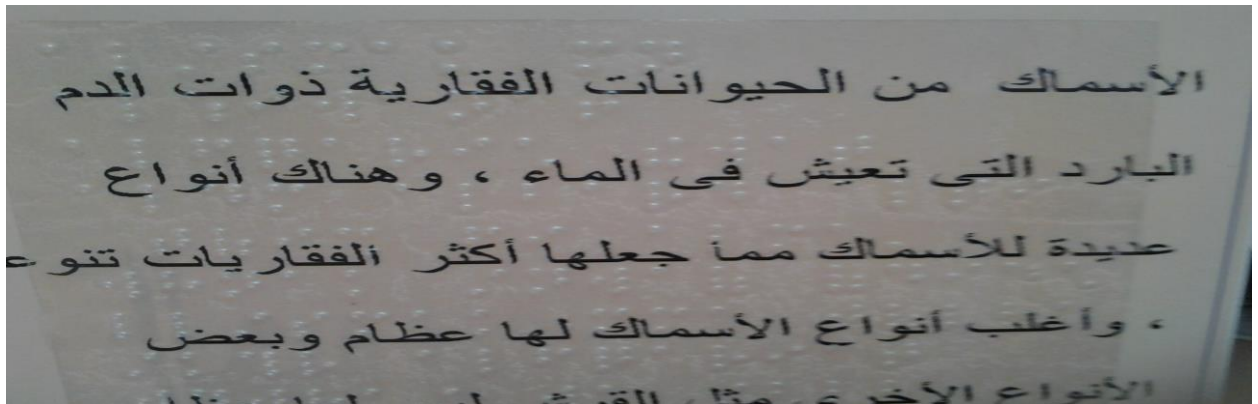 الأسماك من الحيوانات الفقارية ذوات الدم
البارد التى تعيش فى الماء ، وهناك أنواع
عديدة للأسماك مما جعلها أكثر الفقاريات
، وأغلب أنواع الأسماك لها عظام وبعض
الأنواع الأخرى مثل القرش